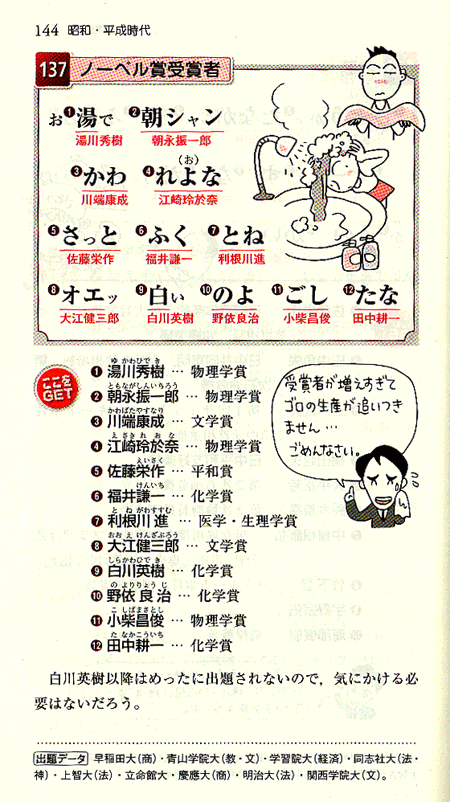 144 昭和・平成時代
137 ノーベル賞受賞者
お❶湯で ❷朝シャン
湯川秀樹 朝永振一郎
❸かわ ❹れよな(お)
川端康成 江崎玲於奈
❺さっと ❻ふく ❼とね
佐藤栄作 福井謙一 利根川進
❽オエッ ❾白い ❿のよ ⓫ごし ⓬たな
大江健三郎 白川英樹 野依良治 小柴昌俊 田中耕一
ここをGET
❶湯川秀樹 … 物理学賞
❷朝永振一郎 … 物理学賞
❸川端康成 … 文学賞
❹江崎玲於奈 … 物理学賞
❺佐藤栄作 … 平和賞
❻福井謙一 … 化学賞
❼利根川進 … 医学・生理学賞
❽大江健三郎 … 文学賞
❾白川英樹 … 化学賞
❿野依良治 … 化学賞
⓫小柴昌俊 … 物理学賞
⓬田中耕一 … 化学賞
受賞者が増えすぎて
ゴロの生産が追いつき
ません…
ごめんなさい。
白川英樹以降はめったに出題されないので，気にかける必
要はないだろう。
出題データ 早稲田大(商)・青山学院大(教・文)・学習院大(経済)・同志社大(法・
神)・上智大(法)・立命館大・慶應大(商)・明治大(法)・関西学院大(文)。